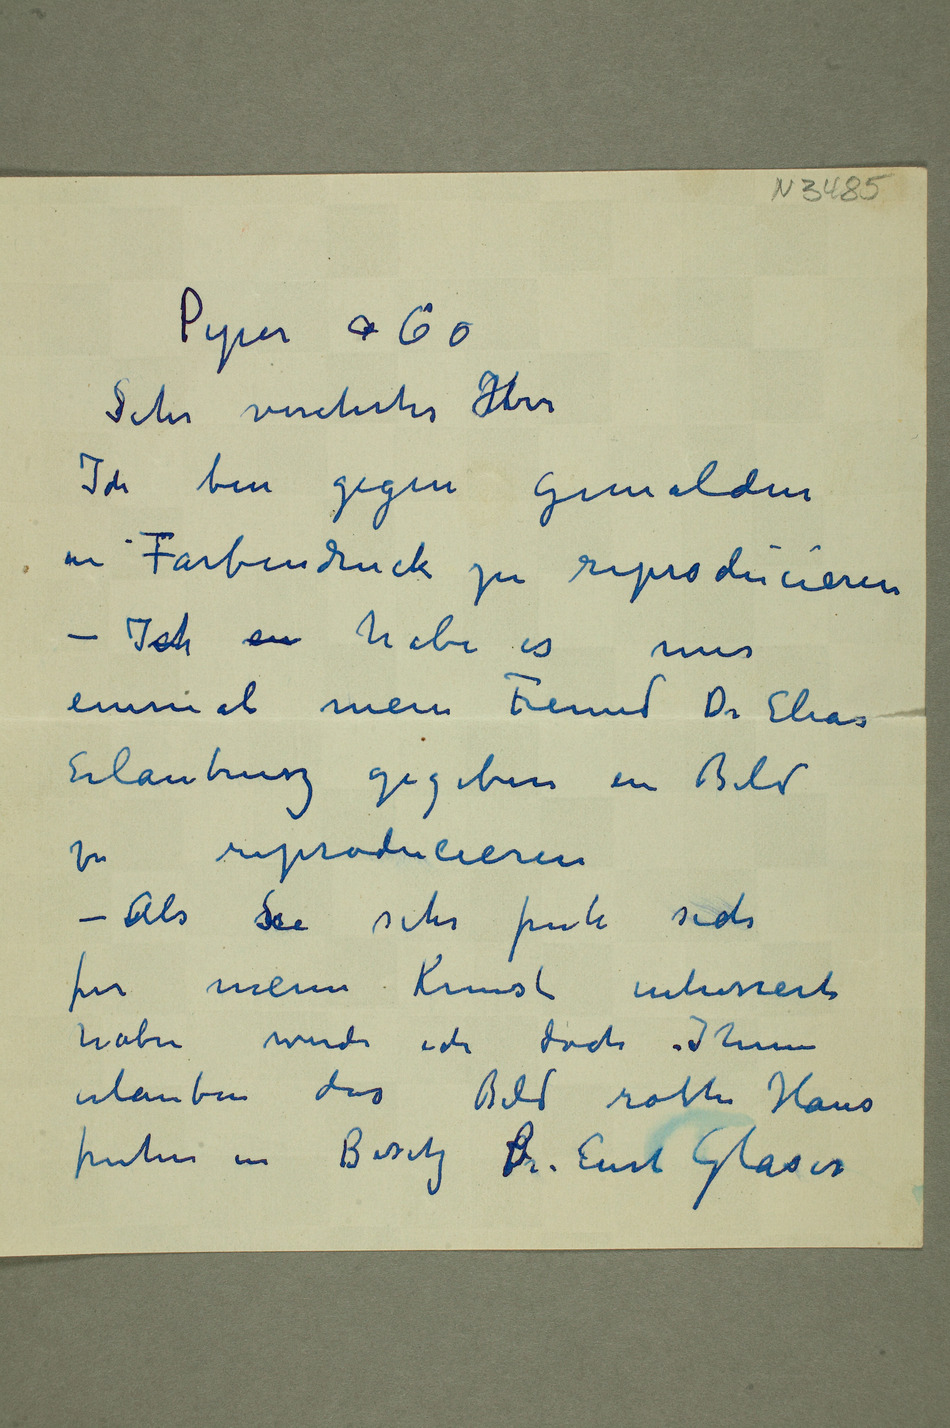 N 3485
Piper & Co
Sehr verehrter Herr
Ich bin gegen Gemälden
in Farbendruck zu reproducieren
– Ich habe es nur
einmal mein Freund Dr Elias
Erlaubnisz gegeben ein Bild
zu reproducieren
– Als Sie sehr früh sich
für meine Kunst interessert
haben wurde ich doch Ihnen
erlauben das Bild rothe Haus
früher in Besitz Dr. Curt Glaser